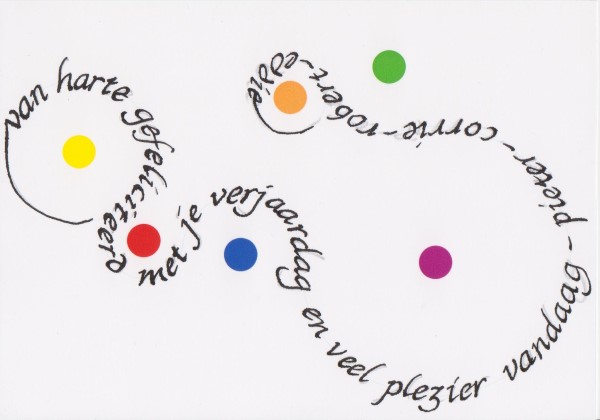 van harte gefeliciteerd met je verjaardag en veel plezier vandaag - pieter - corrie - robert - eddie